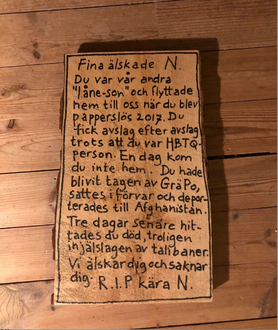 Fina älskade N.
Du var vår andra
"låne-son" och flyttade
hem till oss när du blev
papperslös 2017. Du
fick avslag efter avslag
trots att du var HBTQ-
person. En dag kom
du inte hem. Du hade
blivit tagen av GräPo,
sattes i förvar och depor-
terades till Afghanistan.
Tre dagar senare hit-
tades du död, troligen
ihjälslagen av talibaner.
Vi älskar dig och saknar
dig. R.I.P kära N.